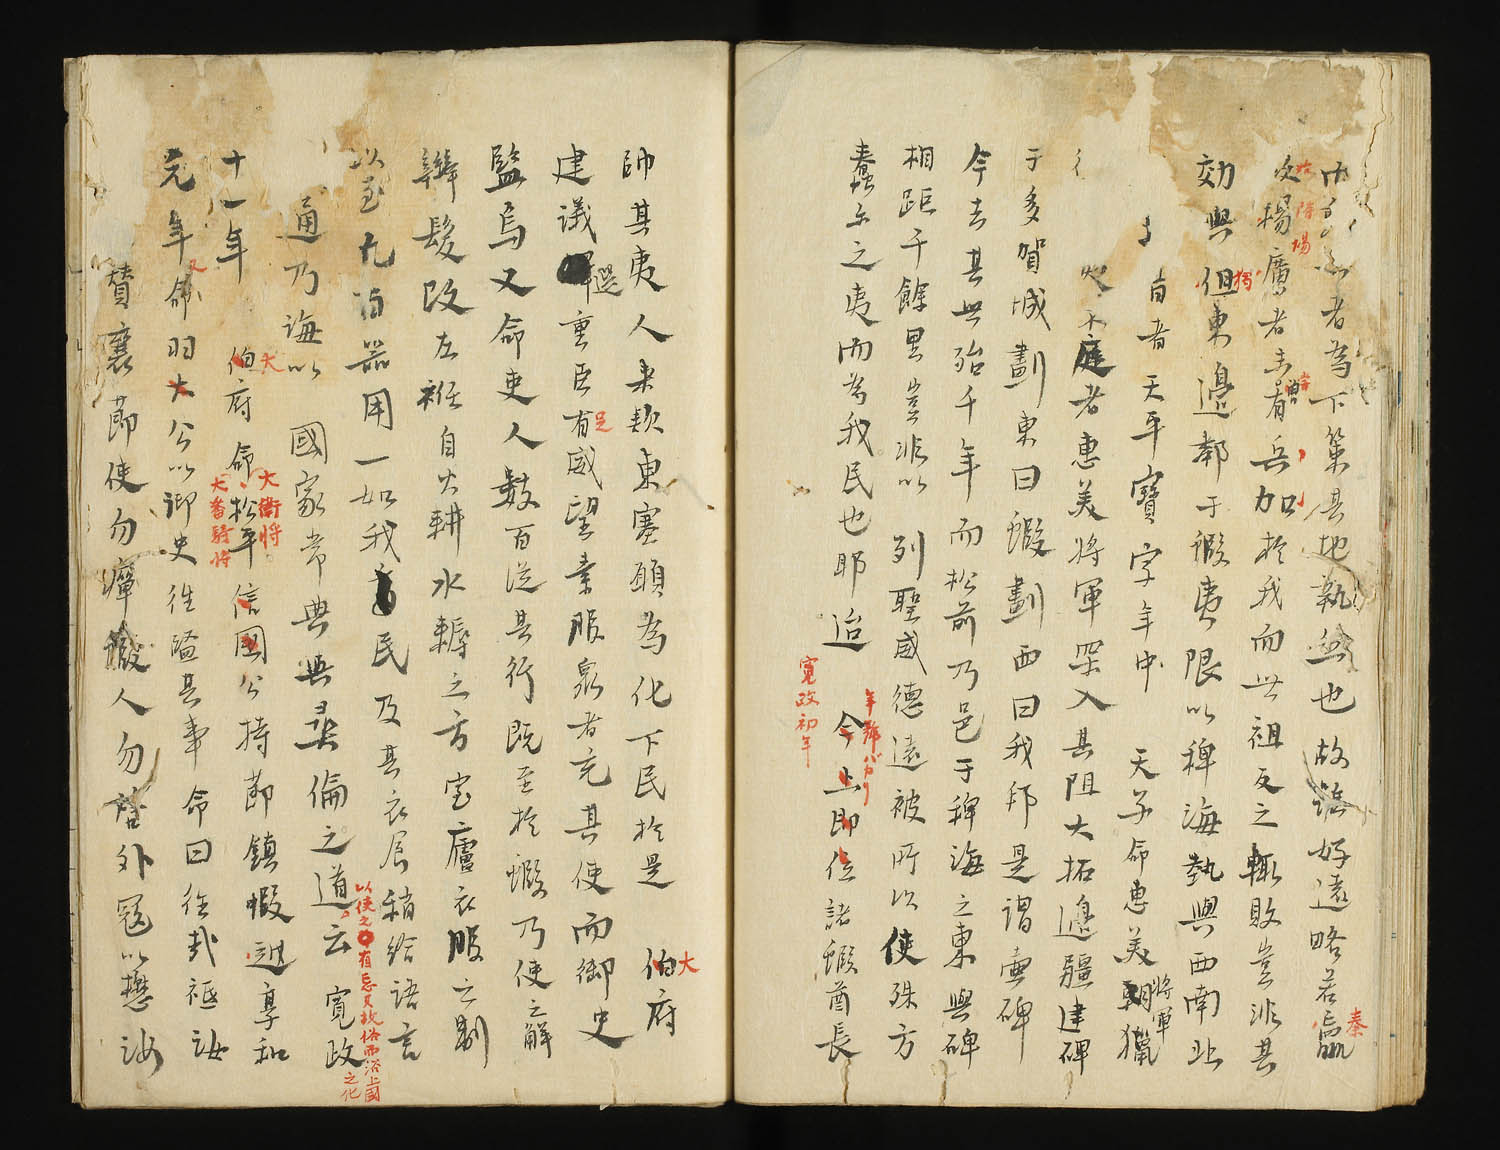 者為下策其地執然也故雖好遠略若嬴
秦
文楊廣者未有兵加於我而世祖反之輒敗豈非其
效與但東邊鄰于蝦夷限以稗海勢與西南北
獨
昔者 天平寶字年中 天子命惠美朝獵
將軍
不庭者惠美將軍深入其阻大拓邊疆建碑
于多賀城劃東曰蝦劃西曰我邦是謂壺碑
今去其世殆千年而松前乃邑于稗海之東與碑
相距千餘里豈非以 列聖威德遠被所以使殊方
蠢尒之夷而為我民也耶迨 今上即位諸蝦酋長
年號バカリ
寬政初年
帥其夷人來款東塞願為化下民於是 伯府
大
建議選重臣有威望素服衆者充其使而御史
足
監焉又命吏人數百從其行既至於蝦乃使之解
辮髮改左衽自火耕水耨之方室廬衣服之制
以至九 器用一如我民及其衣食稍給語言
通乃誨以 國家常典與彝倫之道云 寬政
以使之有忘其故俗而浴上國之化
十一年 伯府命松平信國公持節鎮蝦越享和
大
大衛將
大番騎將
元年命羽大公以御史往監其事 命曰往哉祗汝
又
贊襄節使勿瘝職人勿 外寇以懋汝